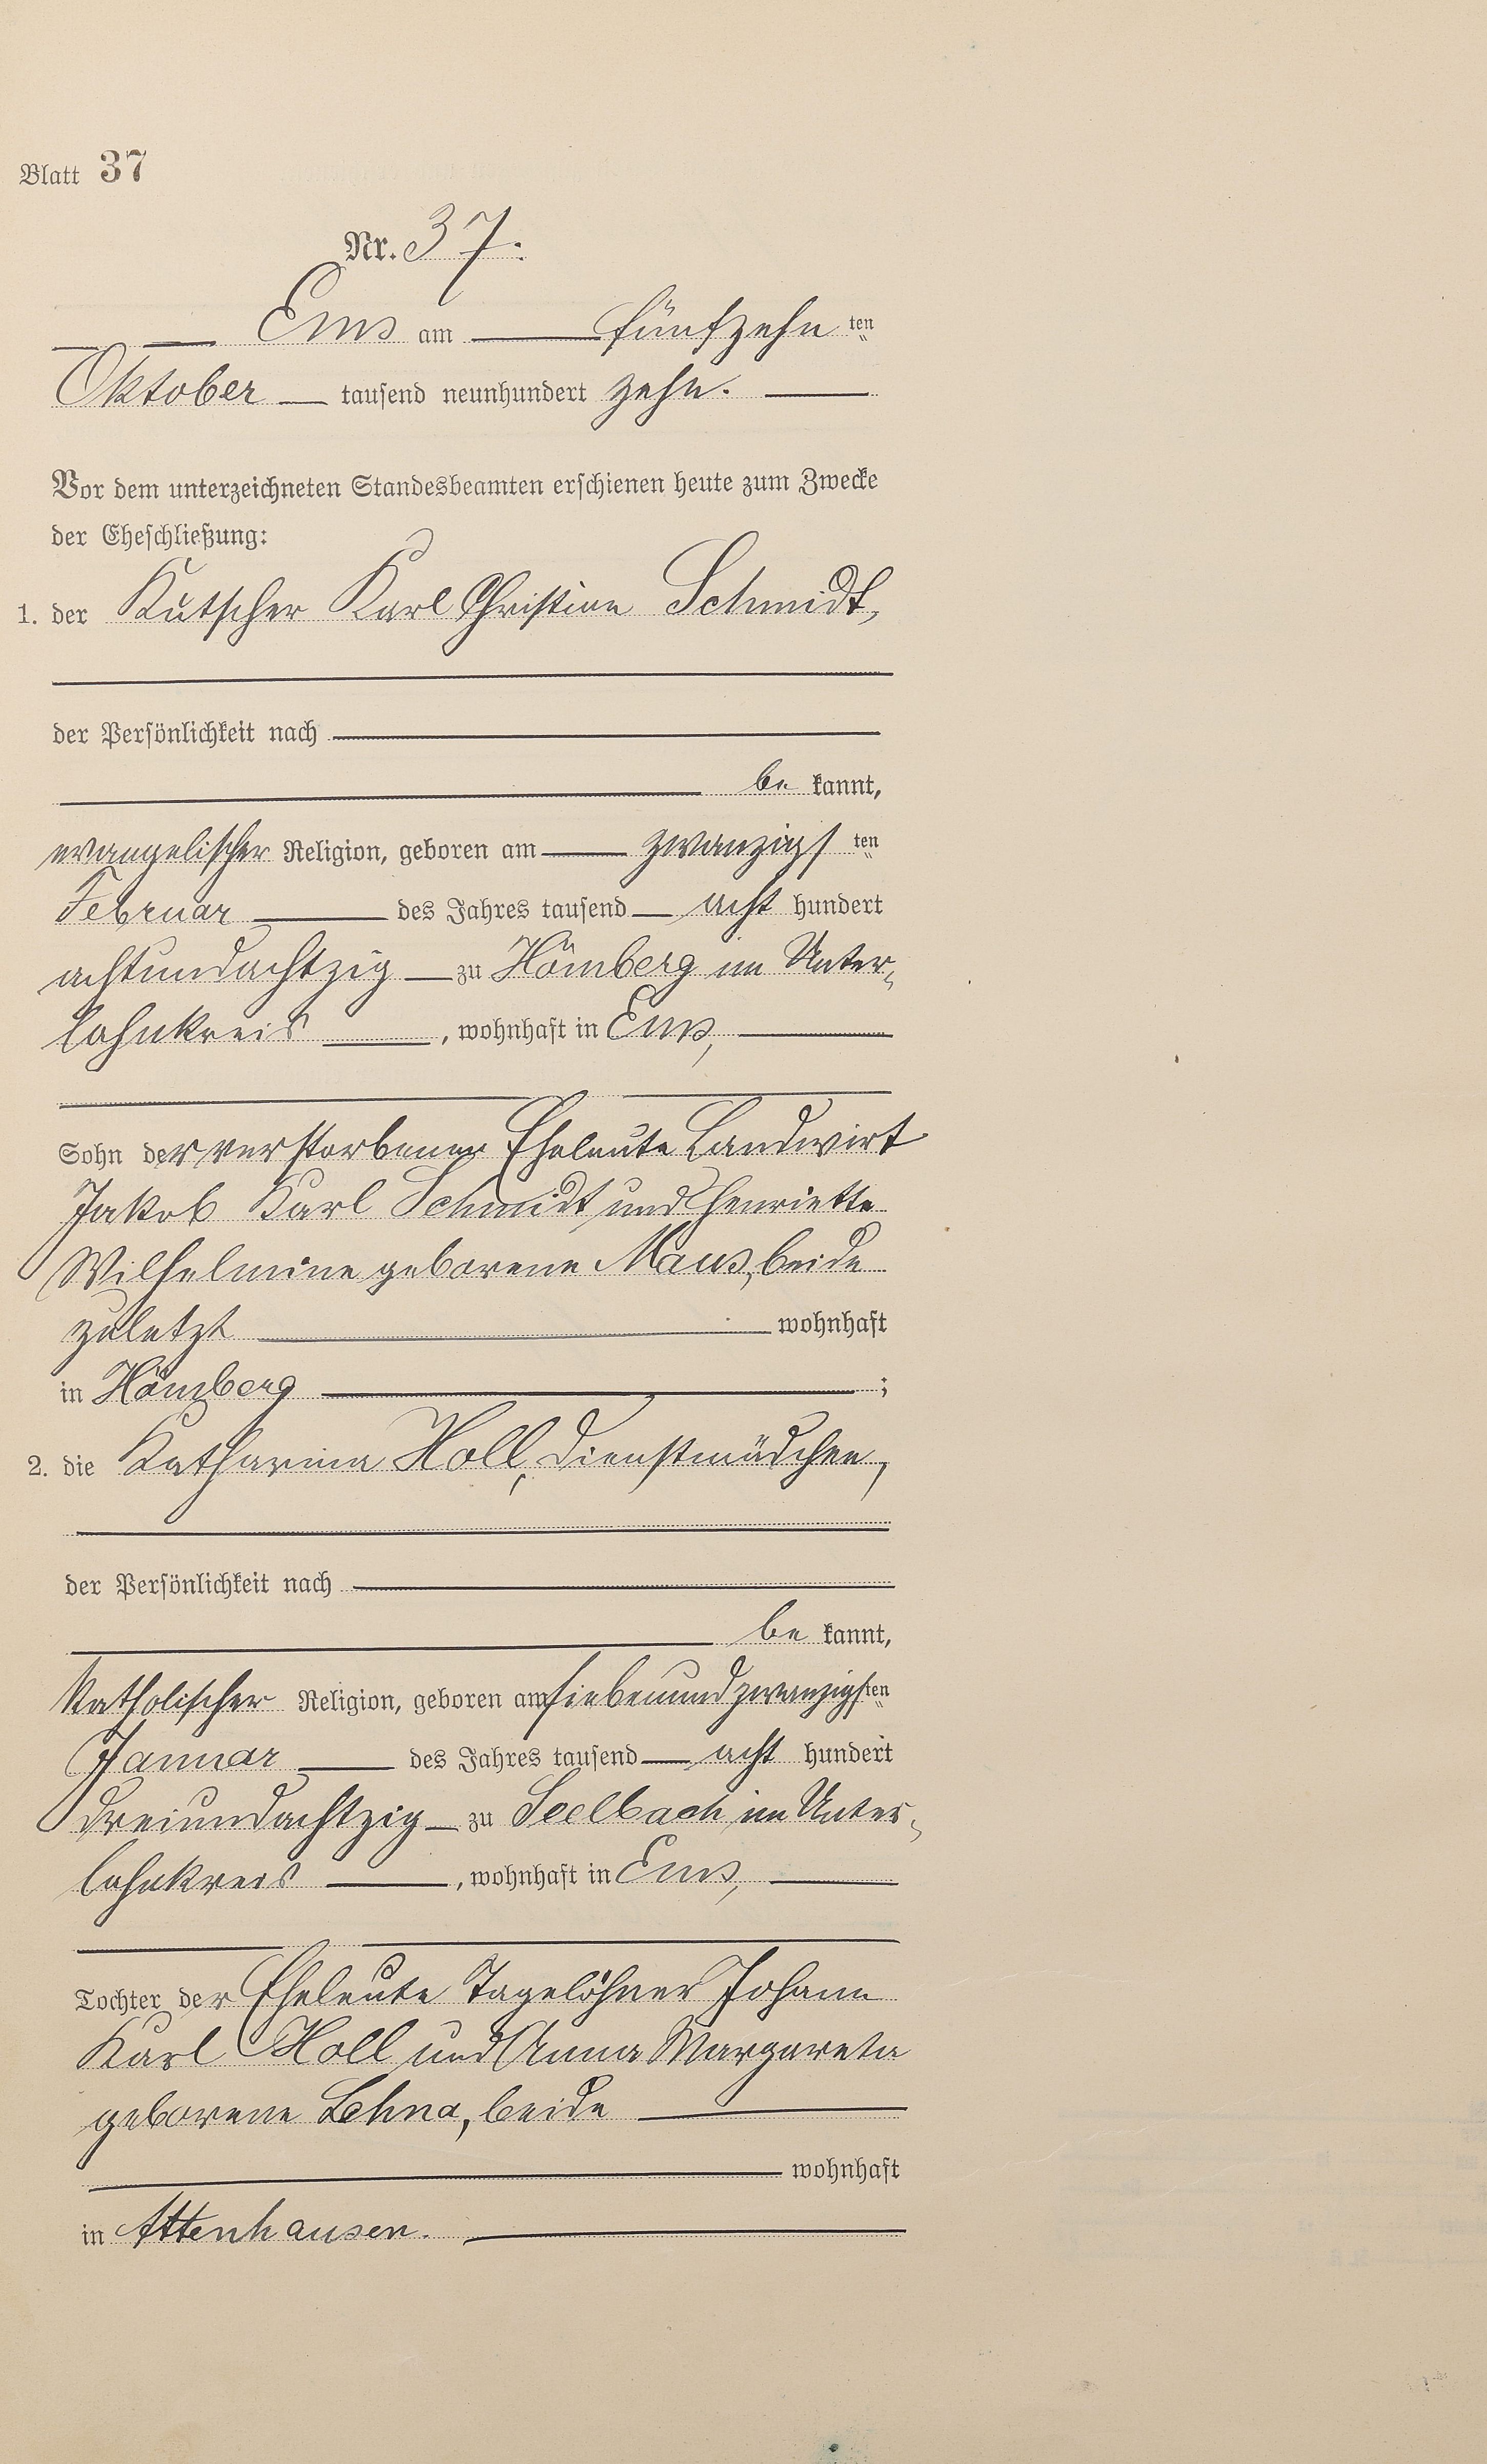 Blatt 37
Nr. 37.
Ems am fünfzehn ten
Oktober tausend neunhundert zehn.
Vor dem unterzeichneten Standesbeamten erschienen heute zum Zwecke
der Eheschließung:
1. der Kutscher Karl Christian Schmidt,
der Persönlichkeit nach
be kannt,
evangelischer Religion, geboren am zwanzigs ten
Februar des Jahres tausend acht hundert
achtundachtzig zu Hömberg im Unter-
lahnkreis, wohnhaft in Ems,
Sohn der verstorbenen Eheleute Landwirt
Jakob Karl Schmidt und Henriette
Wilhelmine geborene Maus, beide
zuletzt wohnhaft
in Hömberg ;
2. die Katharina Holl, Dienstmädchen,
der Persönlichkeit nach
be kannt,
katholischer Religion, geboren am siebenundzwanzigsten
Januar des Jahres tausend acht hundert
dreiundachtzig zu Seelbach im Unter-
lahnkreis, wohnhaft in Ems,
Tochter der Eheleute Tagelöhner Johann
Karl Holl und Anna Margareta
geborene Lehna, beide
wohnhaft
in Attenhausen.